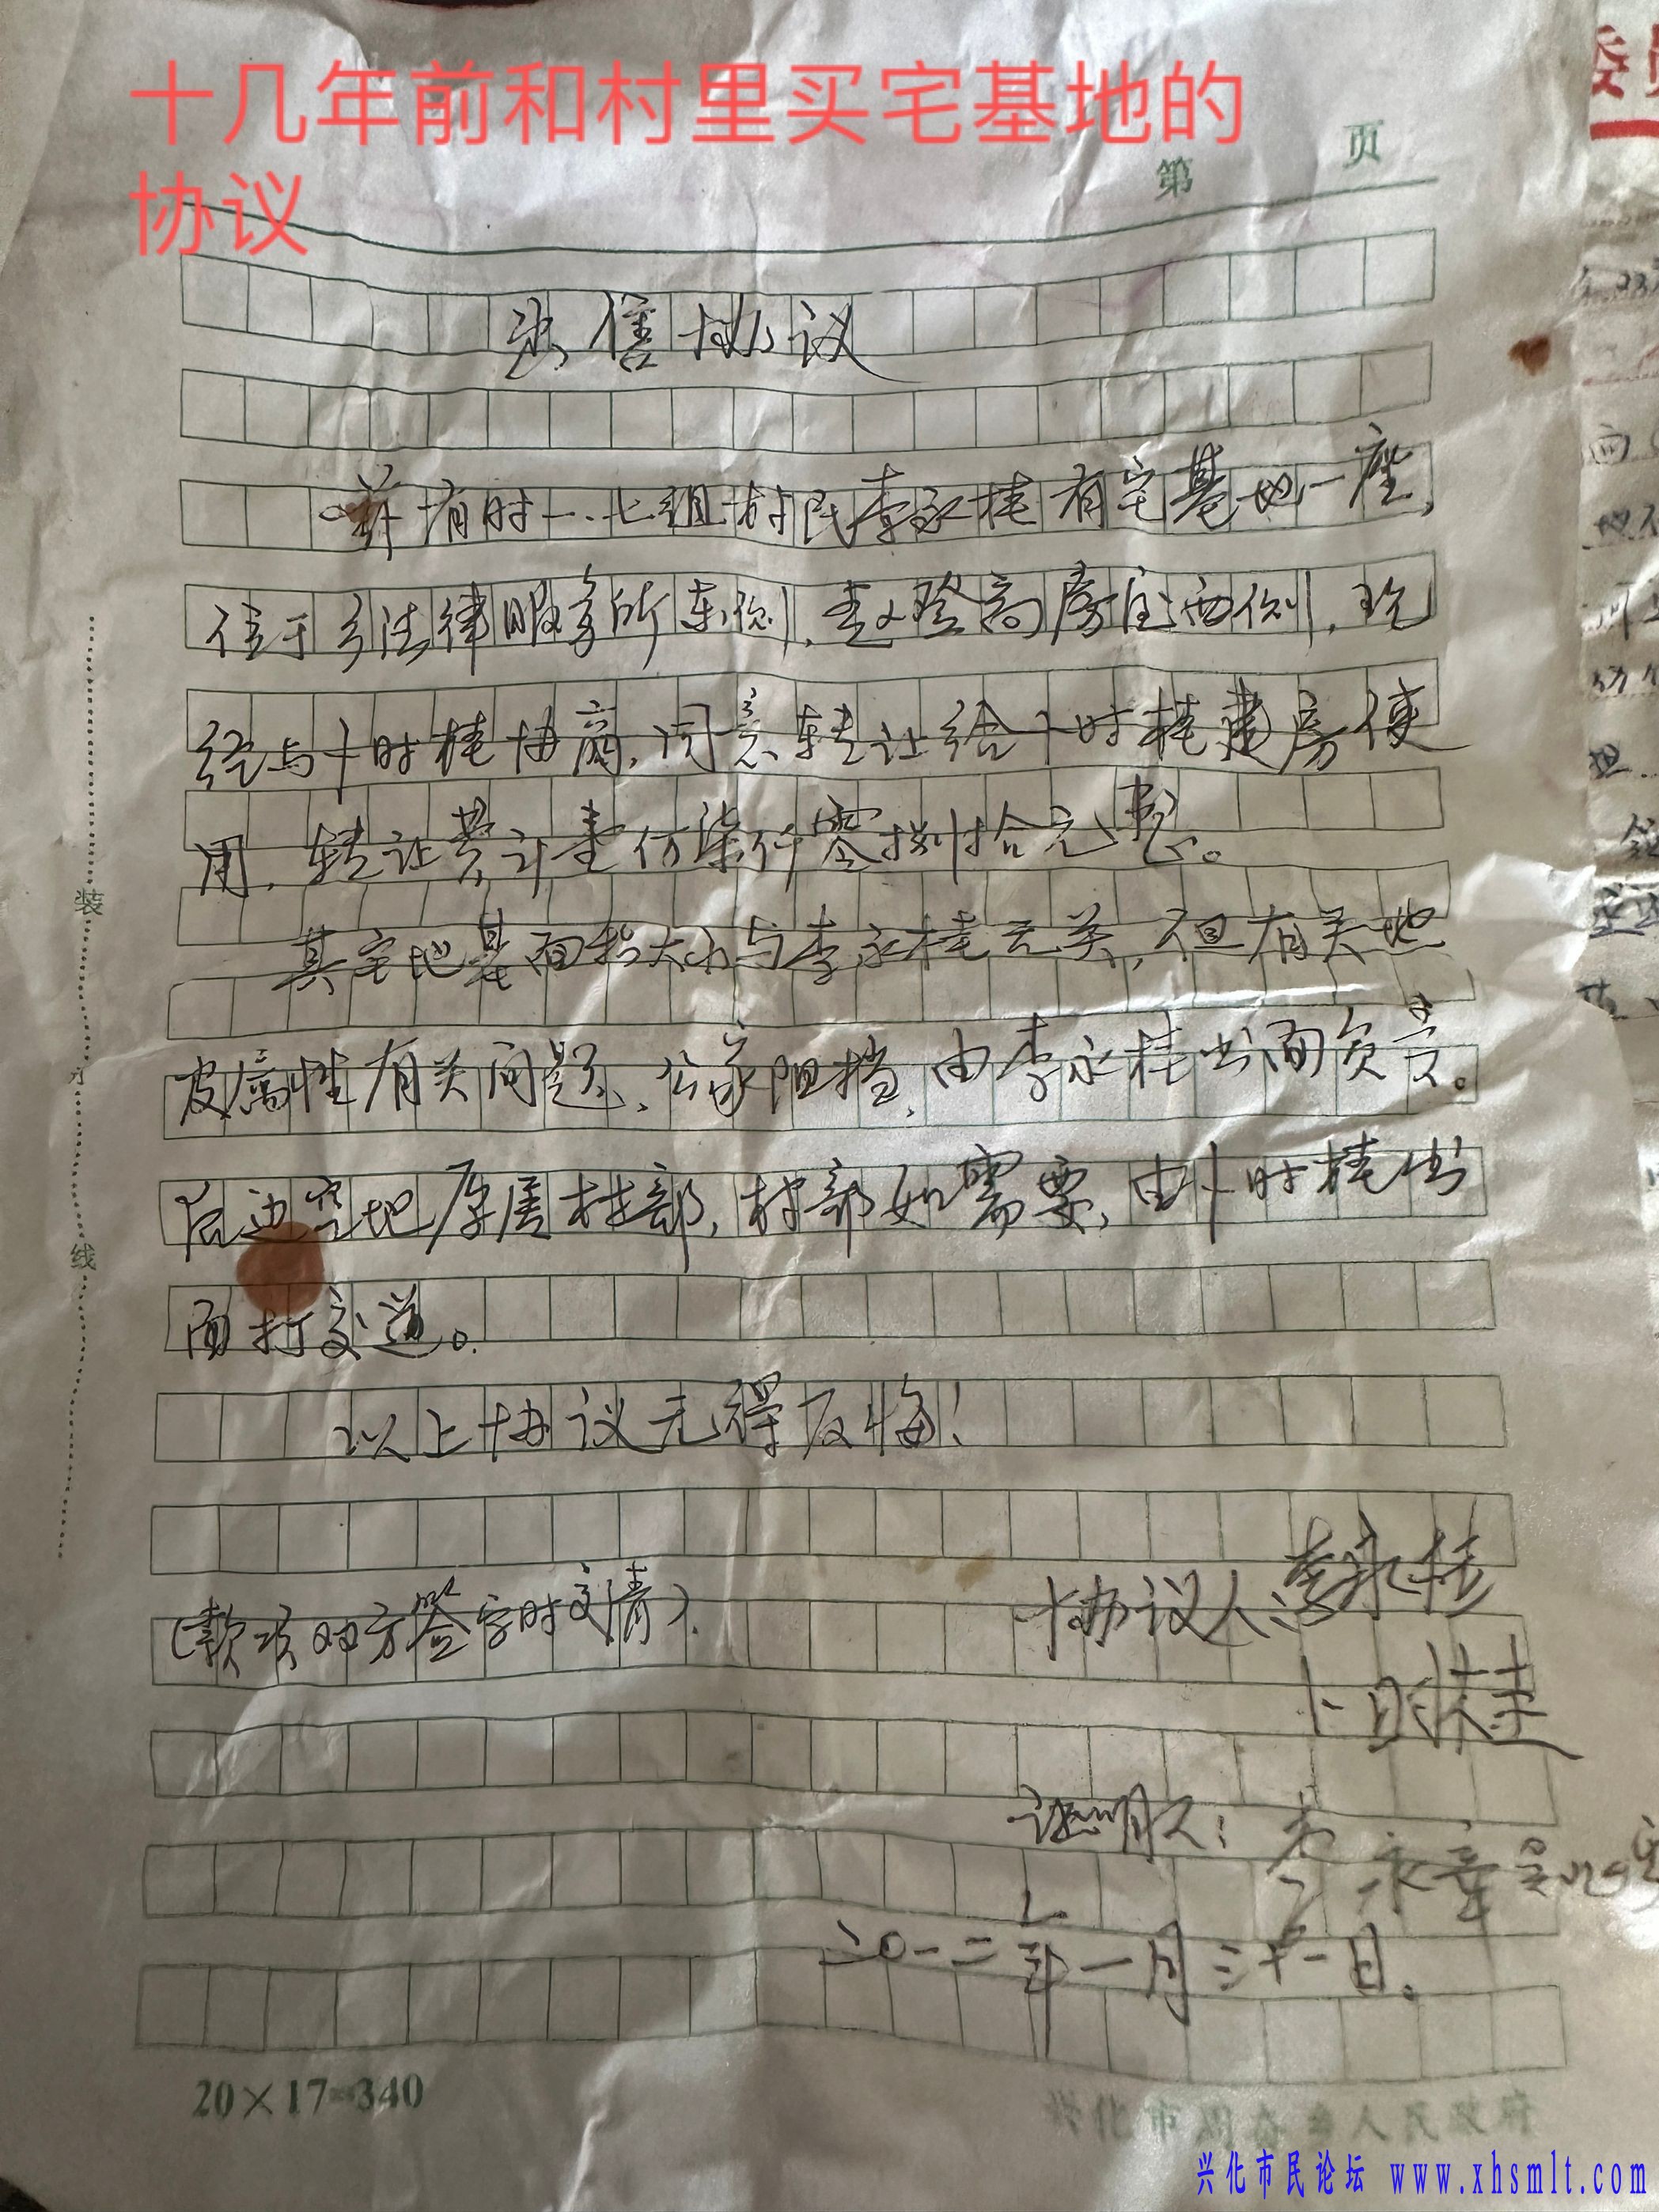 十几年前和村里买宅基地的
协议
第 页
出售协议
兹有时一.七组村民李永桂有宅基地一座,
位于乡法律服务所东侧,
登高房宅西侧,现
经与卜时桂协商,同意转让给卜时桂建房使
用,转让费计壹仟柒仟零捌拾元整。
其宅地基面积大小与李永桂无关,但有关地
皮属性有关问题、公家阻挡,由李永桂出面负责。
后边空地原属村部,村部如需要,由卜时桂出
面打交道。
以上协议无得反悔!
(款项双方签字时交清).
协议人:李永桂
卜时桂
证明人:
永
二〇一二年一月三十一日.
装
线
20×17=340
兴化市民论坛 www.xhsmlt.com